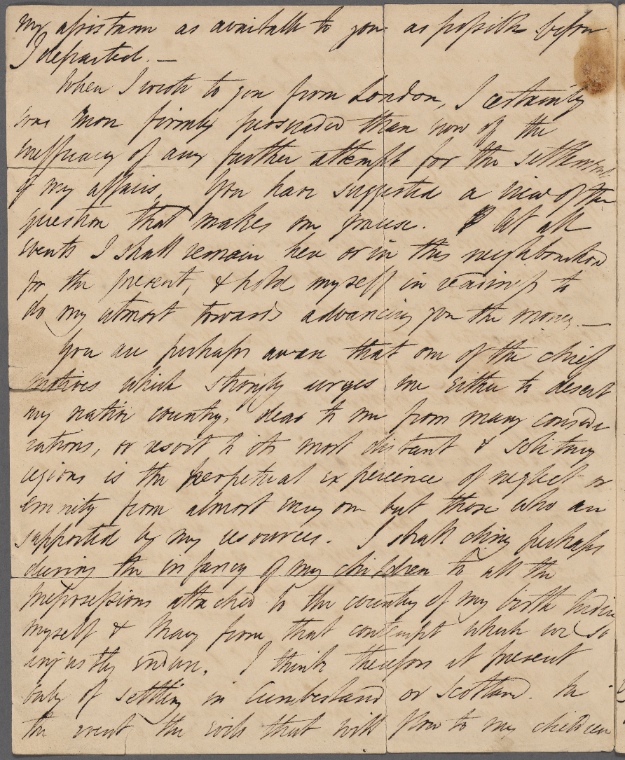 my assistance as available to you as possible before
I departed. —
When I wrote to you from London, I certainly
was more firmly persuaded than now of the
inefficacy of any further attempt for the settlement
of my affairs. You have suggested a view of the
question that makes me pause. At all
events I shall remain here or in this neighbourhood
for the present, & hold myself in readiness to
do my utmost towards advancing you the money. —
You are perhaps aware that one of the chief
motives which strongly urges me either to desert
my native country, dear to me from many conside
rations, or resort to its most distant & solitary
regions is the perpetual experience of neglect or
enmity from almost every one but those who are
supported by my resources. I shall cling perhaps
during the infancy of my children to all the
prepossessions attached to the country of my birth hiding
myself & Mary from that contempt which we so
unjustly endure. I think therefore at present
only of settling in Cumberland or Scotland. In
the event the evils that will flow to my children